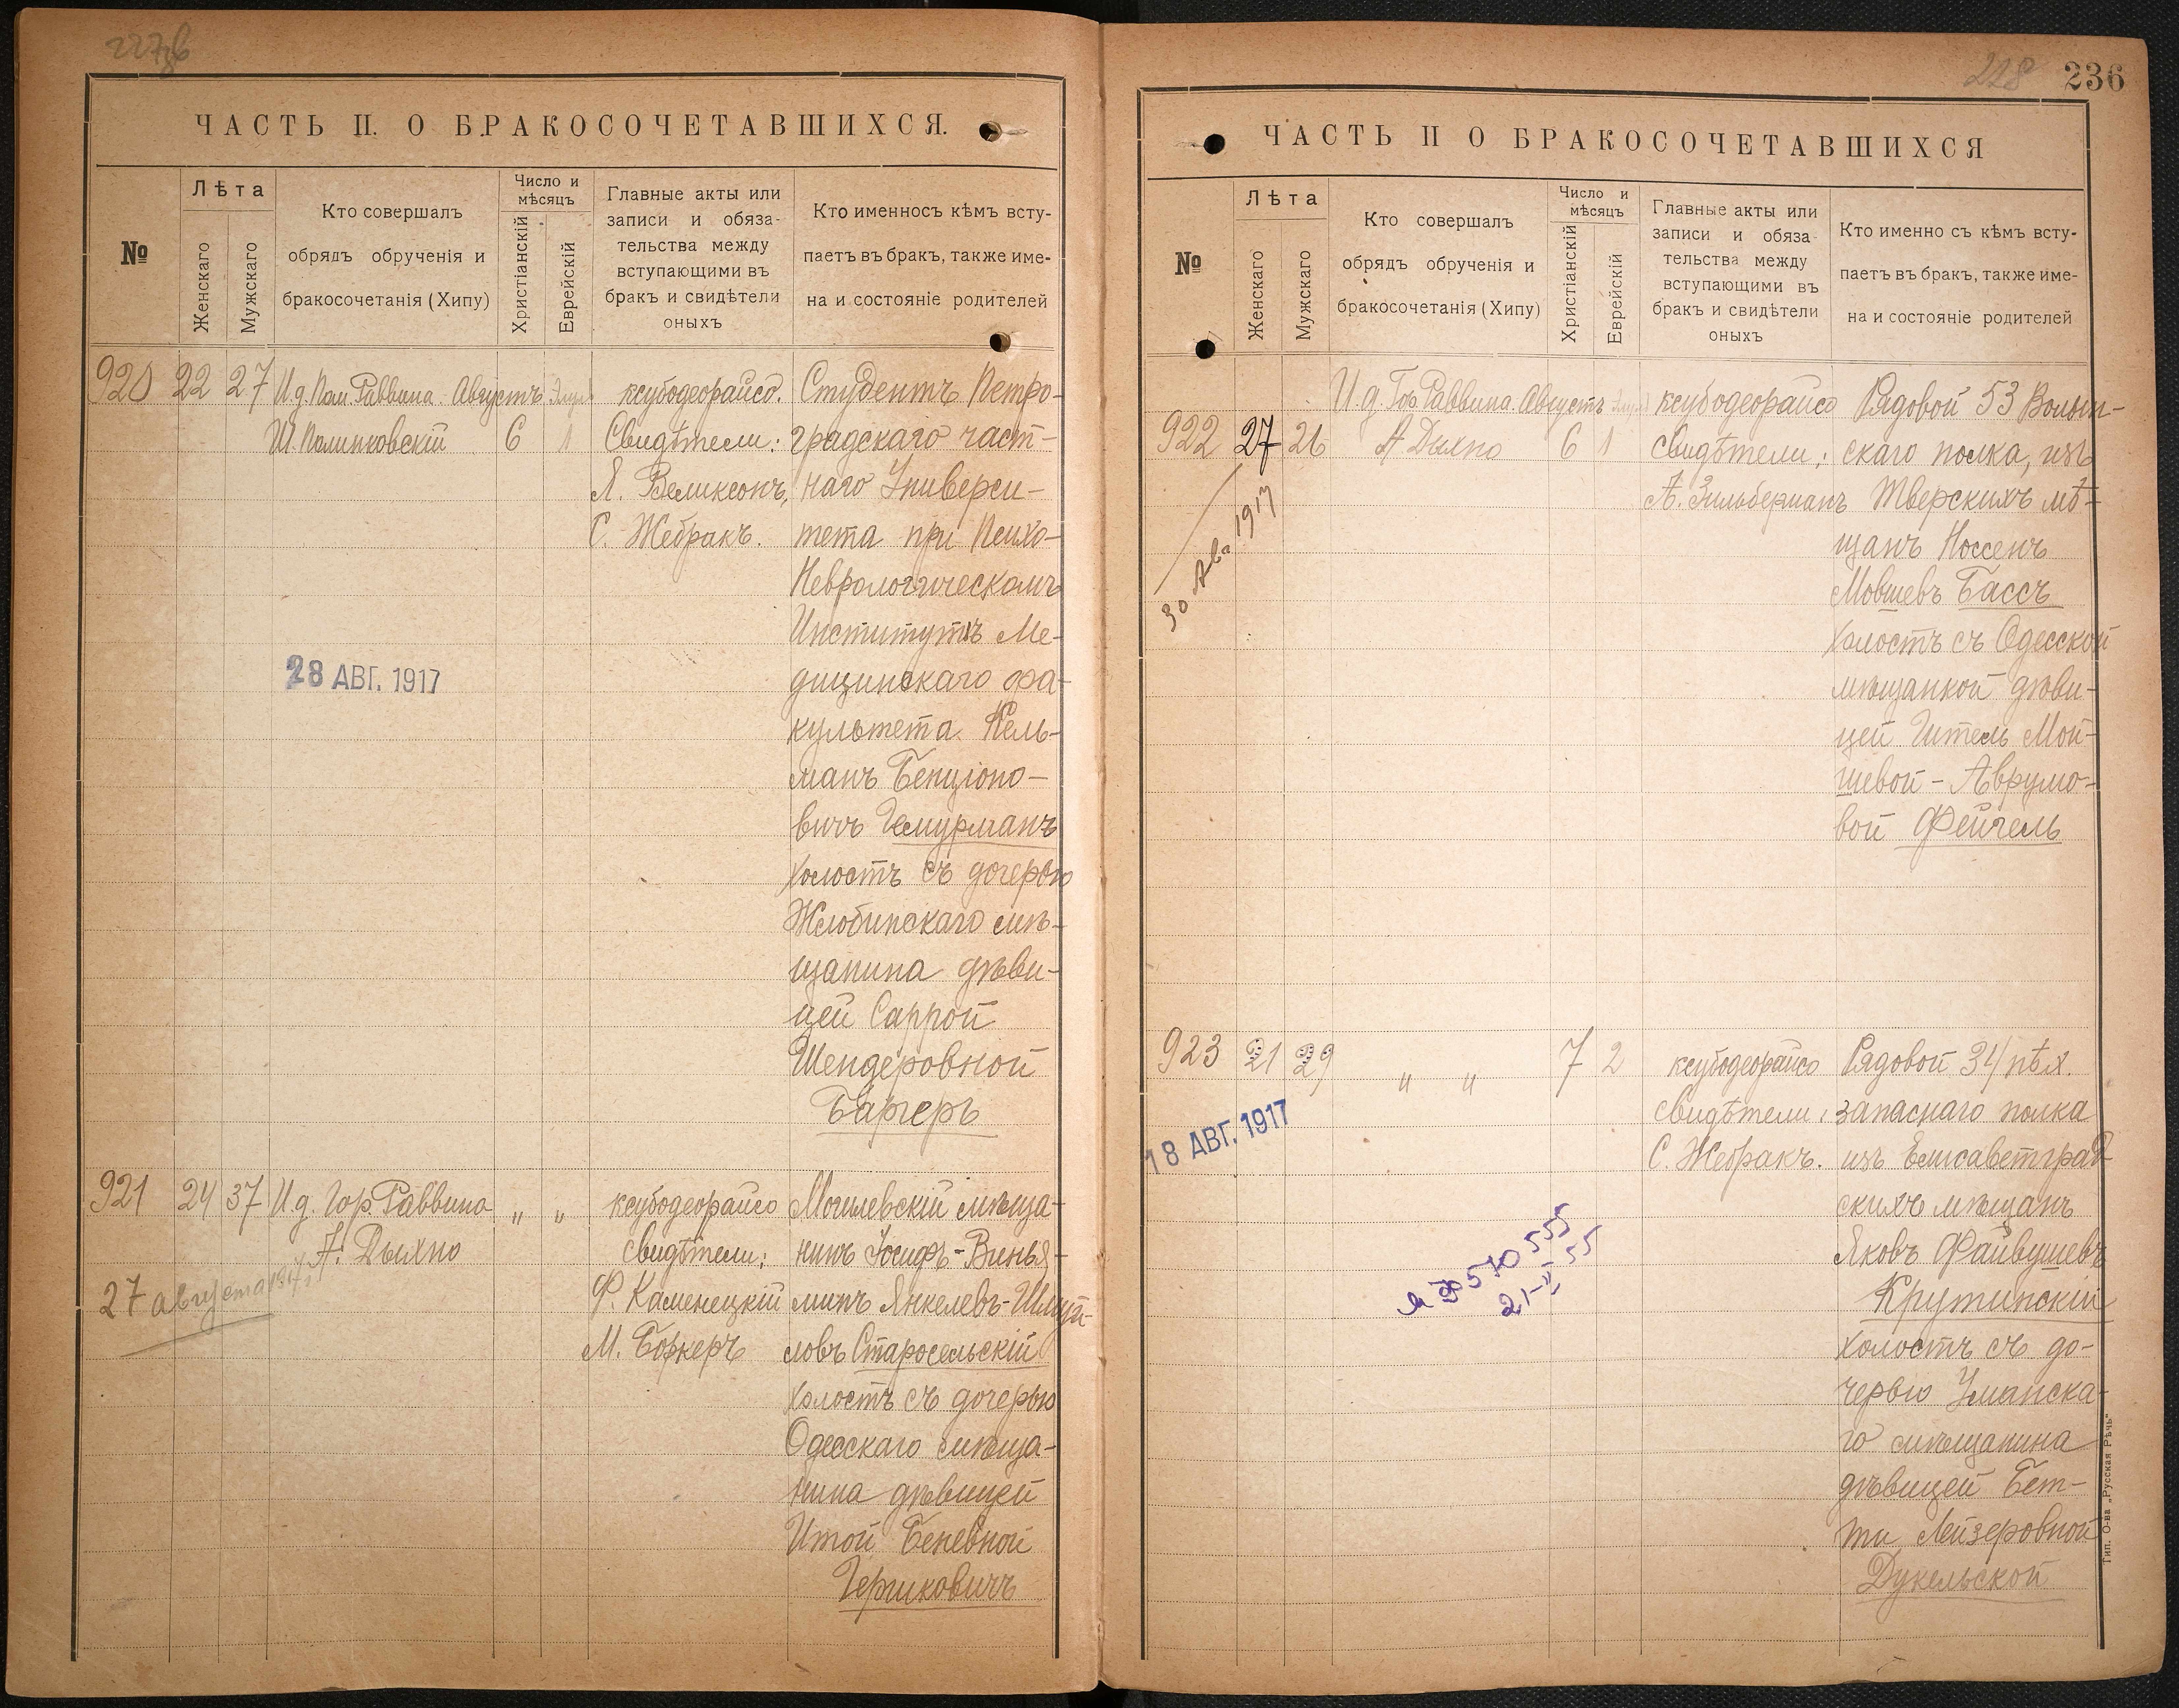 ЧАСТЬ II. О БРАКОСОЧЕТАВШИХСЯ.
№
Лѣта
Женскаго
Мужскаго
Кто совершалъ
обрядъ обрученія и
бракосочетанія (Хипу)
Число и
мѣсяцъ
Христіанскій
Еврейскій
Главные акты или
записи и обяза-
тельства между
вступающими въ
бракъ и свидѣтели
оныхъ
Кто именносъ кѣмъ всту-
паетъ въ бракъ, также име-
на и состояніе родителей
920 22 27
И.д. Пом. Раввина
Ш. Полинковскій
Августъ
6 1
ксубодеорайсо.
Свидѣтели:
Я. Великсонъ,
С. Жебракъ.
Студентъ Петро-
градскаго част-
наго Универси-
тета при Психо-
Неврологическомъ
Институтѣ Ме-
дицинскаго фа-
культета Кель-
манъ Бенціоно-
вичъ Гемурманъ
холостъ съ дочерью
Жлобинскаго мѣ-
щанина дѣви-
цей Саррой
Шендеровной
Баргеръ
28 АВГ. 1917
921 24 37
И.д. Гор. Раввина
А. Дыхно
" "
ксубодеорайсо
свидѣтели:
Ф. Каменецкій
М. Боркеръ
Могилевскій мѣща-
нинъ Іосифъ-Винья-
минъ Янкелевъ-Шмуй-
ловъ Старосельскій
холостъ съ дочерью
Одесскаго мѣща-
нина дѣвицей
Итой Беневной
Гершковичъ
27 августа 1917 г.
228
236
ЧАСТЬ II О БРАКОСОЧЕТАВШИХСЯ
№
Лѣта
Женскаго
Мужскаго
Кто совершалъ
обрядъ обрученія и
бракосочетанія (Хипу)
Число и
мѣсяцъ
Христіанскій
Еврейскій
Главные акты или
записи и обяза-
тельства между
вступающими въ
бракъ и свидѣтели
оныхъ
Кто именно съ кѣмъ всту-
паетъ въ бракъ, также име-
на и состояніе родителей
922 27 26
И.д. Гор. Раввина
А Дыхно
Августъ
6 1
ксубодеорайсо
свидѣтели:
А. Зильберманъ
Рядовой 53 Волын-
скаго полка, изъ
Тверскихъ мѣ-
щанъ Носсенъ
Мовшевъ Бассъ
холостъ съ Одесской
мѣщанкой дѣви-
цей Гитель Мой-
шевой-Аврумо-
вой Фейгель
30 Ав. 1917
923 21 29
" "
7 2
ксубодеорайсо
свидѣтели:
С. Жебракъ.
Рядовой 34 пѣх.
запаснаго полка
изъ Елисаветград
скихъ мѣщанъ
Яковъ Файвушевъ
Крутинскій
холостъ съ до-
черью Уманска-
го мѣщанина
дѣвицей Бет-
ти Лейзеровной
Дукельской
18 АВГ. 1917
570555
21-II 55
Тип. О-ва „Русская Рѣчь“